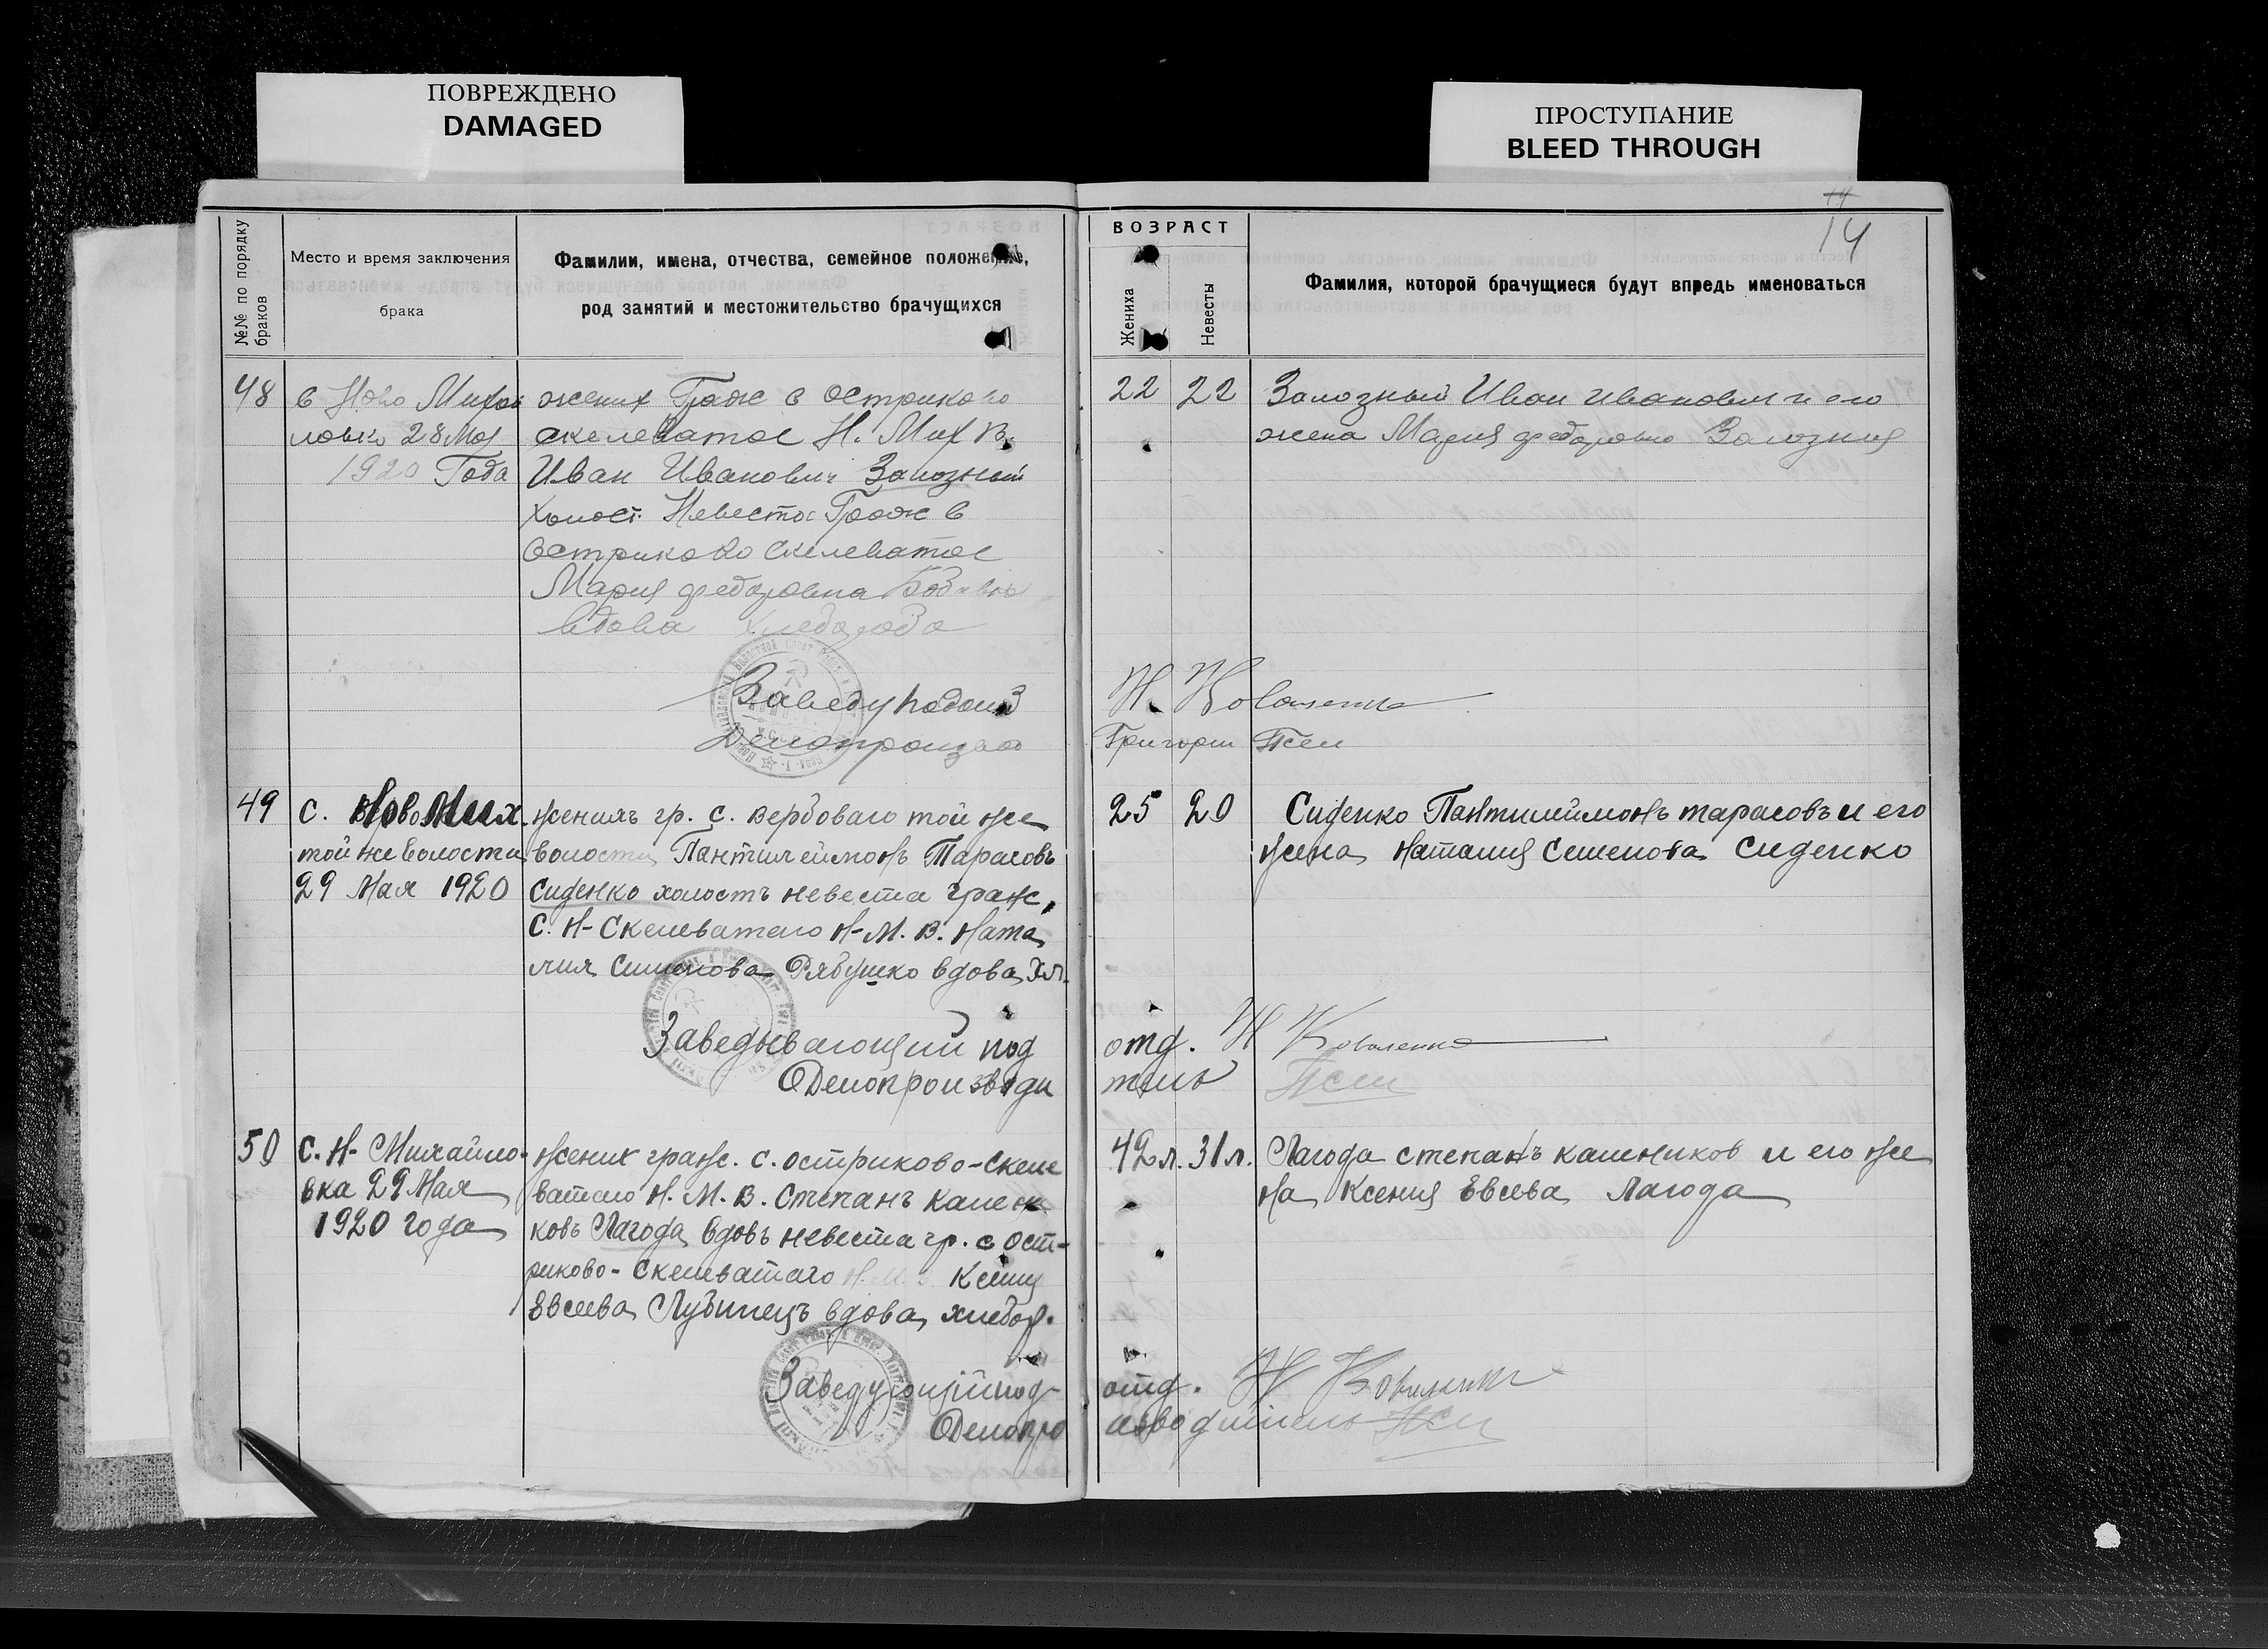 ПОВРЕЖДЕНО
DAMAGED
ПРОСТУПАНИЕ
BLEED THROUGH
14
14
№№ по порядку браков
Место и время заключения
брака
Фамилии, имена, отчества, семейное положение,
род занятий и местожительство брачущихся
ВОЗРАСТ
Жениха
Невесты
Фамилия, которой брачущиеся будут впредь именоваться
48
в Ново Михай
ловка 28 Мая
1920 Года
жених Граж с Острикого
скелеватое Н. Мих В.
Иван Иванович Залозный
холост Невеста Граж в
Остриково Скелеватое
Мария федоровна
вдова хлебороба
Заведу подотд
Делопроизво
22 22
Залозный Иван Иванович и его
жена Мария федоровна Залозная
Н. Коваленко
Григорий
49
с. Ново Мих.
той же волости
29 Мая 1920
жених гр. с. вербоваго той же
волости Пантилеймонъ Тарасовъ
Сиденко холостъ невеста граж.
с. Н-Скелеватаго Н-М. В. Ната
лия Симснова Рябушко вдова Хл.
Заведывающий под
Делопроизводи
25 20
Сиденко Пантилиймонъ тарасовъ и его
жена Наталия Семенова Сиденко
отд. Н Коваленко
тель
50
с. Н- Михайло-
вка 29 Мая
1920 года
жених граж. с. остриково-Скеле
ватаго Н. М. В. Степанъ Калени
ковъ Лагода вдовъ невеста гр. с Ост-
риково-Скелеватаго Н. М. В. Ксения
Евсеева Лубинецъ вдова, хлебор.
Заведующий под-
Делопро
42 л. 31 л.
Лагода степанъ калеников и его же
на Ксения Евсева Лагода
отд. Н Коваленко
изводитель